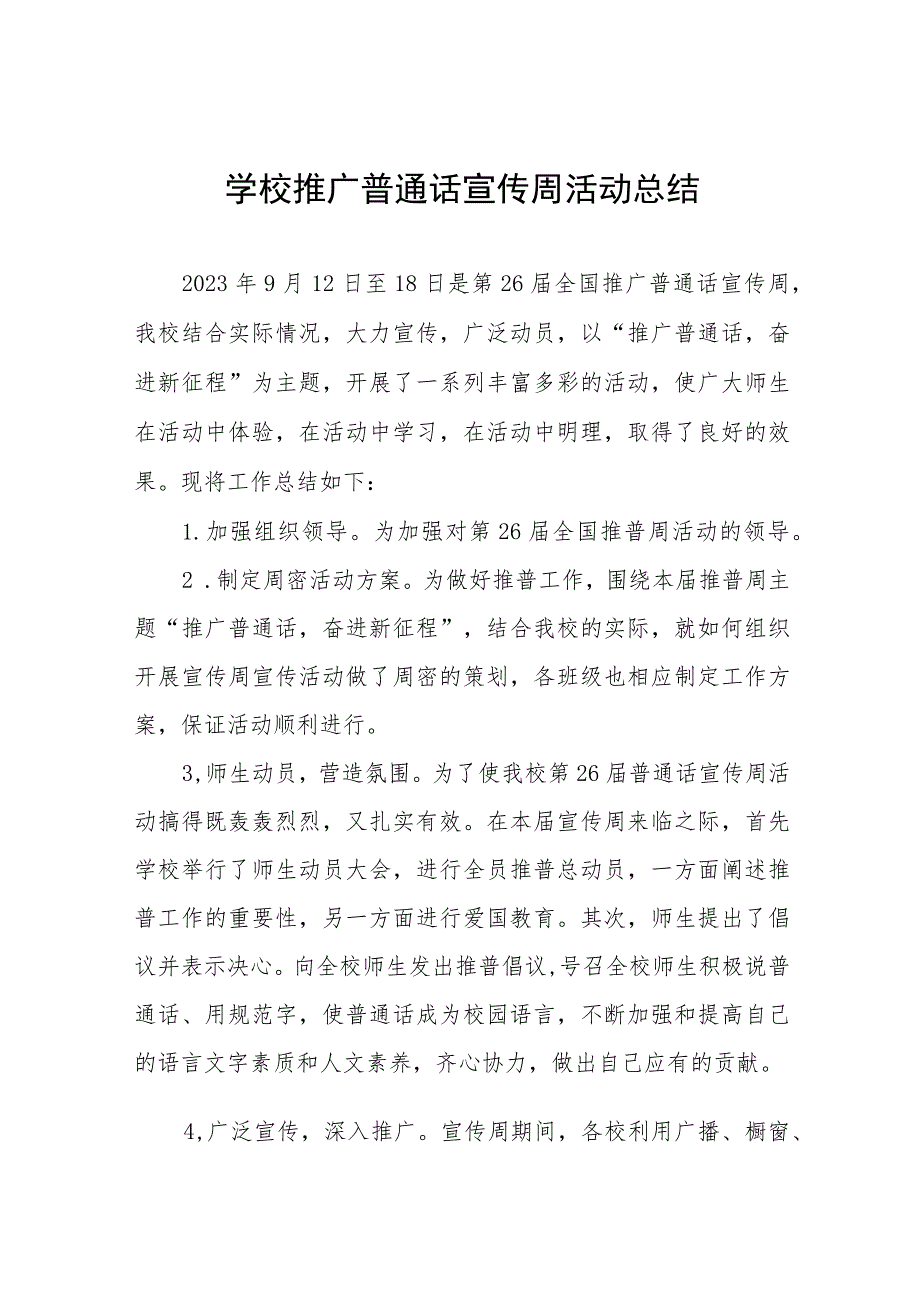 学校推广普通话宣传周活动总结
2023 年 9 月 12 日至 18 日是第 26 届全国推广普通话宣传周，
我校结合实际情况，大力宣传，广泛动员，以“推广普通话，奋
进新征程”为主题，开展了一系列丰富多彩的活动，使广大师生
在活动中体验，在活动中学习，在活动中明理，取得了良好的效
果。现将工作总结如下：
1.加强组织领导。为加强对第 26 届全国推普周活动的领导。
2 .制定周密活动方案。为做好推普工作，围绕本届推普周主
题“推广普通话，奋进新征程”，结合我校的实际，就如何组织
开展宣传周宣传活动做了周密的策划，各班级也相应制定工作方
案，保证活动顺利进行。
3,师生动员，营造氛围。为了使我校第 26 届普通话宣传周活
动搞得既轰轰烈烈，又扎实有效。在本届宣传周来临之际，首先
学校举行了师生动员大会，进行全员推普总动员，一方面阐述推
普工作的重要性，另一方面进行爱国教育。其次，师生提出了倡
议并表示决心。向全校师生发出推普倡议,号召全校师生积极说普
通话、用规范字，使普通话成为校园语言，不断加强和提高自己
的语言文字素质和人文素养，齐心协力，做出自己应有的贡献。
4,广泛宣传，深入推广。宣传周期间，各校利用广播、橱窗、